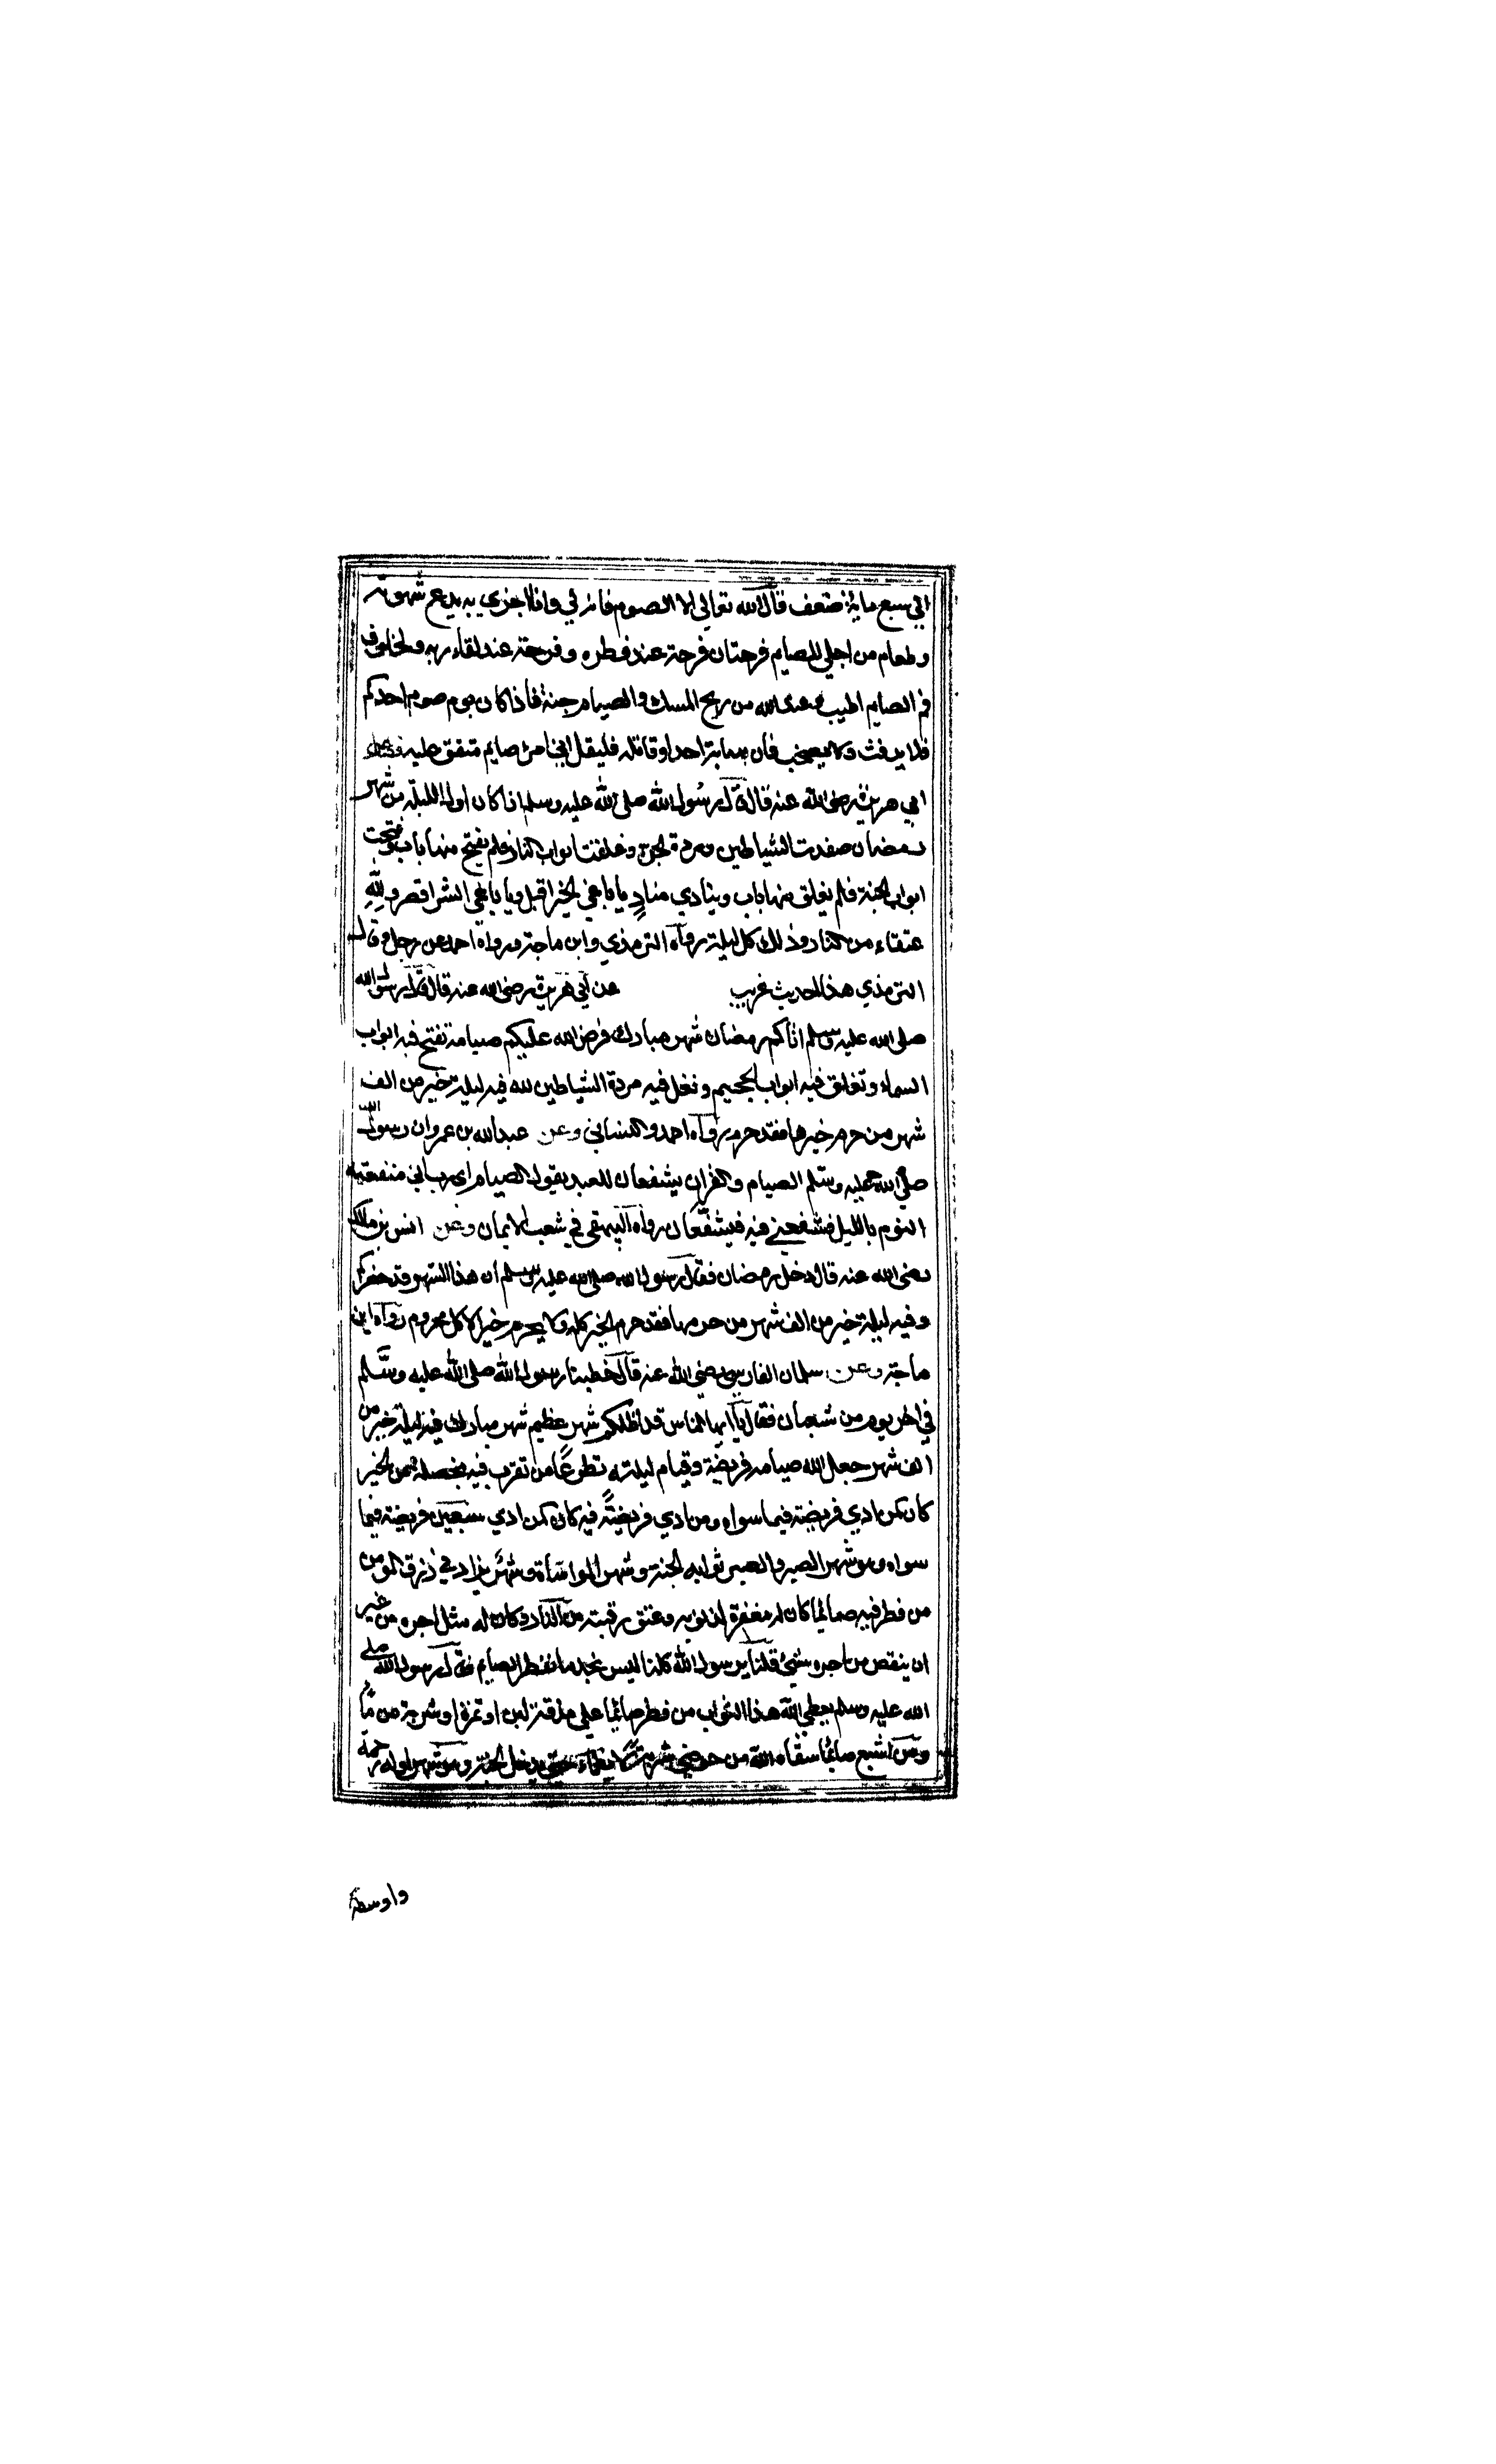 الي سبع ماية ضعف قال الله تعالى الا الصوم فانه لي وانا اجزي به يدع شهوته
وطعام من اجلي للصايم فرحتان فرحة عند فطره وفرحة عند لقاء ربه ولخلوف
فم الصايم اطيب عند الله من ريح المسك والصيام جنة فاذا كان يوم صوم احدكم
فلا يرفث ولا يصخب فان سابه احد او قاتله فليقل اني امرئ صايم متفق عليه
ابي هريرة رضي الله عنه قال قال رسول الله صلى الله عليه وسلم اذا كان اول الليلة من شهر
رمضان صفدت الشياطين ومردة الجن وغلقت ابواب النار فلم يفتح منها باب وفتحت
ابواب الجنة فلم يغلق منها باب وينادي مناد يا باغي الخير اقبل ويا باغي الشر اقصر ولله
عتقاء من النار وذلك كل ليلة رواه الترمذي وابن ماجة ورواه احمد عن رجل وقال
الترمذي هذا الحديث غريب عن ابي هريرة رضي الله عنه قال قال رسول الله
صلى الله عليه وسلم اتاكم رمضان شهر مبارك فرض الله عليكم صيامه تفتح فيه ابواب
السماء وتغلق فيه ابواب الجحيم وتغل فيه مردة الشياطين لله فيه ليلة خير من الف
شهر من حرم خيرها فقد حرم رواه احمد والنسائي وعن عبد الله بن عمرو ان رسول الله
صلى الله عليه وسلم الصيام والقران يشفعان للعبد يقول الصيام اي رب اني منعته
النوم بالليل فشفعني فيه فيشفعان رواه البيهقي في شعب الايمان وعن انس بن مالك
رضي الله عنه قال دخل رمضان فقال رسول الله صلى الله عليه وسلم ان هذا الشهر قد حضركم
وفيه ليلة خير من الف شهر من حرمها فقد حرم الخير كله ولا يحرم خير الا كل محروم رواه ابن
ماجة وعن سلمان الفارسي رضي الله عنه قال خطبنا رسول الله صلى الله عليه وسلم
في اخر يوم من شعبان فقال يا ايها الناس قد اظلكم شهر عظيم شهر مبارك فيه ليلة خير من
الف شهر جعل الله صيامه فريضة وقيام ليلته تطوعا من تقرب فيه بخصلة من الخير
كان كمن ادي فريضة فيما سواه ومن ادي فريضة فيه كان كمن ادي سبعين فريضة فيما
سواه وهو شهر الصبر والصبر ثوابه الجنة وشهر المواساة وشهر يزاد في رزق المومن
من فطر فيه صائما كان له مغفرة لذنوبه وعتق رقبته من النار وكان له مثل اجره من غير
ان ينقص من اجره شيئ قلنا يرسول الله كلنا ليس نجد ما نفطر الصايم فقال رسول الله صلى
الله عليه وسلم يعطي الله هذا الثواب من فطر صائما علي مذقة لبن او تمرة او شربة من ما
ومن اشبع صائما سقاه الله من حوضي شربة لا يظماء حتى يدخل الجنة وهو شهر اوله رحمة
واوسطه